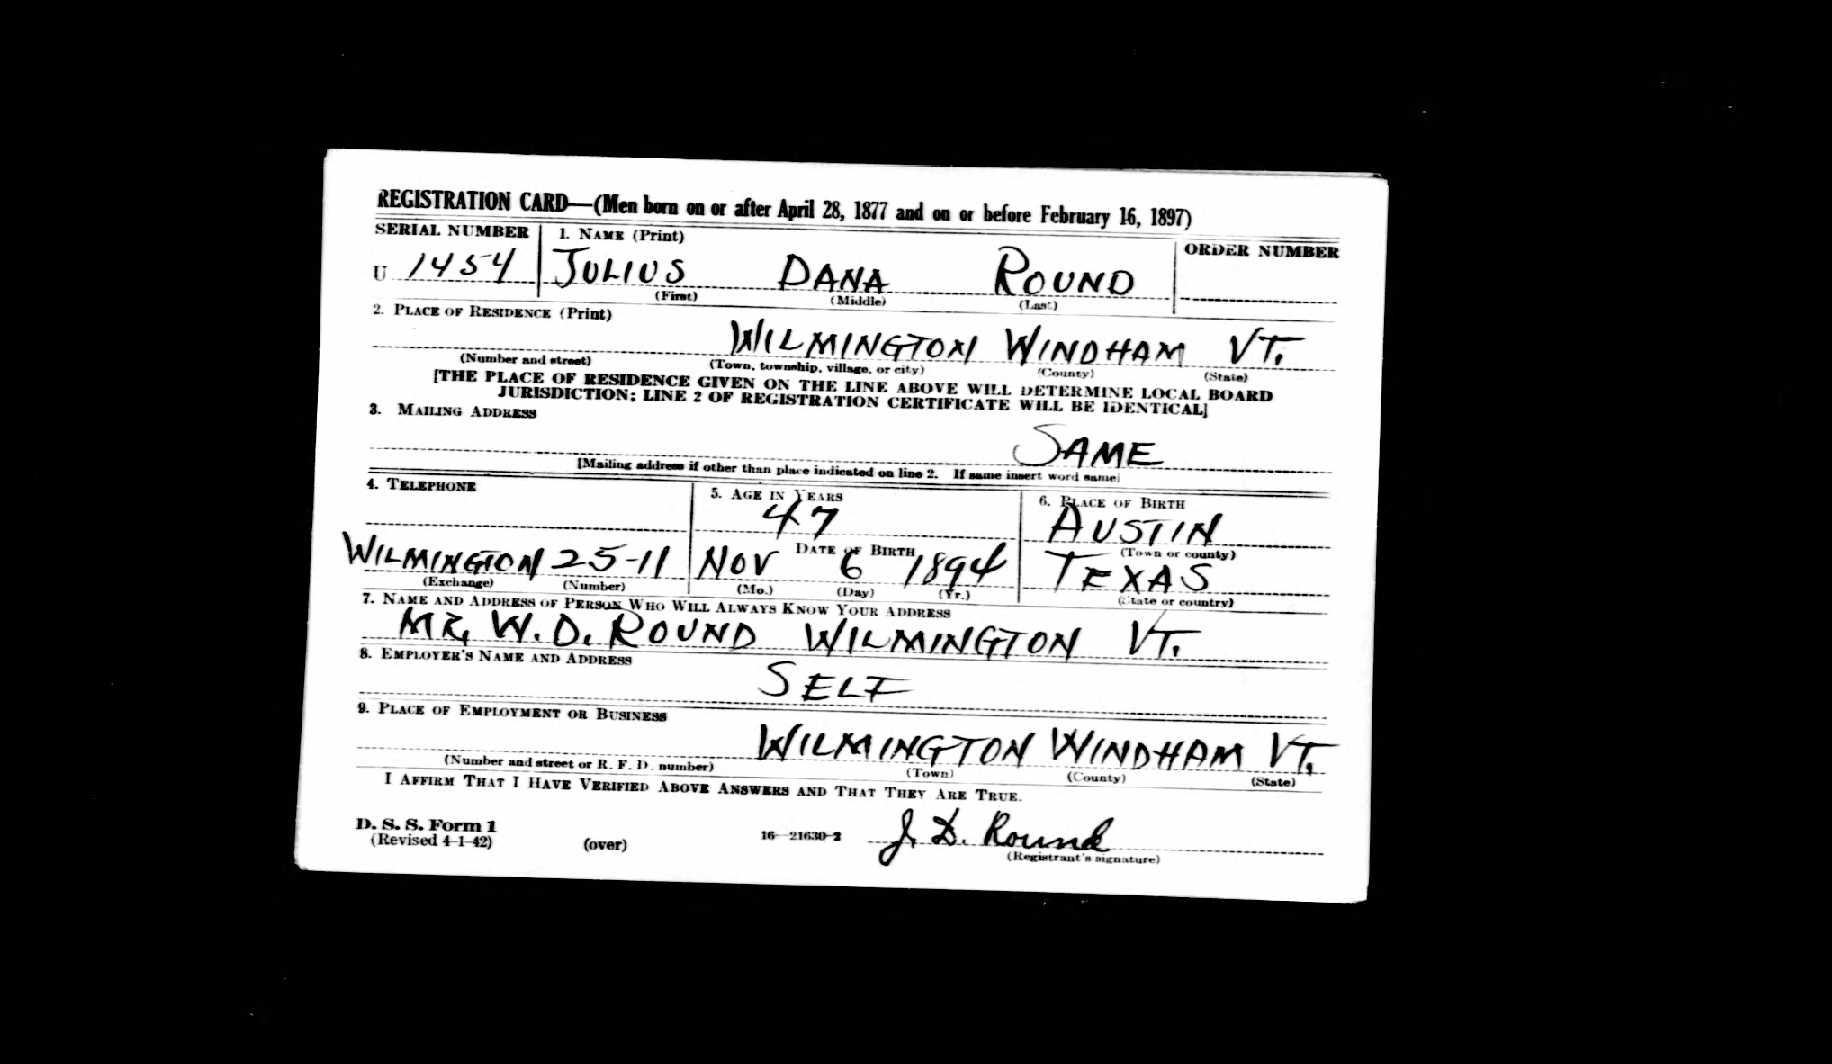 REGISTRATION CARD—(Men born on or after April 28, 1877 and on or before February 16, 1897)
SERIAL NUMBER 1. NAME (Print) ORDER NUMBER
U 1454 JULIUS DANA ROUND
(First) (Middle) (Last)
2. PLACE OF RESIDENCE (Print)
WILMINGTON WINDHAM VT.
(Number and street) (Town, township, village, or city) (County) (State)
[THE PLACE OF RESIDENCE GIVEN ON THE LINE ABOVE WILL DETERMINE LOCAL BOARD
JURISDICTION; LINE 2 OF REGISTRATION CERTIFICATE WILL BE IDENTICAL]
3. MAILING ADDRESS
SAME
[Mailing address if other than place indicated on line 2. If same insert word same]
4. TELEPHONE 5. AGE IN YEARS 6. PLACE OF BIRTH
47 AUSTIN
DATE OF BIRTH (Town or county)
WILMINGTON 25-11 NOV 6 1894 TEXAS
(Exchange) (Number) (Mo.) (Day) (Yr.) (State or country)
7. NAME AND ADDRESS OF PERSON WHO WILL ALWAYS KNOW YOUR ADDRESS
MR. W. D. ROUND WILMINGTON VT.
8. EMPLOYER'S NAME AND ADDRESS
SELF
9. PLACE OF EMPLOYMENT OR BUSINESS
WILMINGTON WINDHAM VT.
(Number and street or R. F. D. number) (Town) (County) (State)
I AFFIRM THAT I HAVE VERIFIED ABOVE ANSWERS AND THAT THEY ARE TRUE.
D. S. S. Form 1
(Revised 4-1-42) (over) 16—21630-2 J. D. Round
(Registrant's signature)